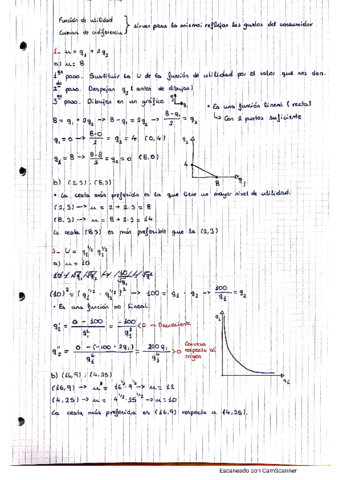 Función de utilidad
Curvas de indiferencia } sirven para lo mismo: reflejar los gustos del consumidor
1- u = q1 + 2q2
a) u = 8
1er paso. Sustituir la U de la función de utilidad por el valor que nos dan.
2do paso. Despejar q2 (antes de dibujar)
3er paso. Dibujar en un gráfico q2 q1
• Es una función lineal (recta)
↳ Con 2 puntos suficiente
8 = q1 + 2q2 → 8 - q1 = 2q2 → (8 - q1)/2 = q2
q1 = 0 → (8-0)/2 = q2 = 4 (0,4)
q1 = 8 → (8-8)/2 = q2 = 0 (8,0)
q2
4
8
q1
b) (2,3); (8,3)
• La cesta más preferida es la que tiene un mayor nivel de utilidad.
(2,3) → u = 2 + 2·3 = 8
(8,3) → u = 8 + 2·3 = 14
La cesta (8,3) es más preferible que la (2,3)
3- U = q1^1/2 q2^1/2
a) u = 10
(10)² = (q1^1/2 · q2^1/2)² → 100 = q1 · q2 → 100/q1 = q2
• Es una función no lineal:
q2' = (0 - 100)/q1² = -100/q1² < 0 → Decreciente
q2'' = (0 - (-100 · 2q1))/q1⁴ = 200q1/q1⁴ > 0
Convexa respecto al origen
q2
q1
b) (16,9); (4,25)
(16,9) → u = 16^1/2 · 9^1/2 → u = 12
(4,25) → u = 4^1/2 · 25^1/2 → u = 10
La cesta más preferida es (16,9) respecto a (4,25).
Escaneado con CamScanner